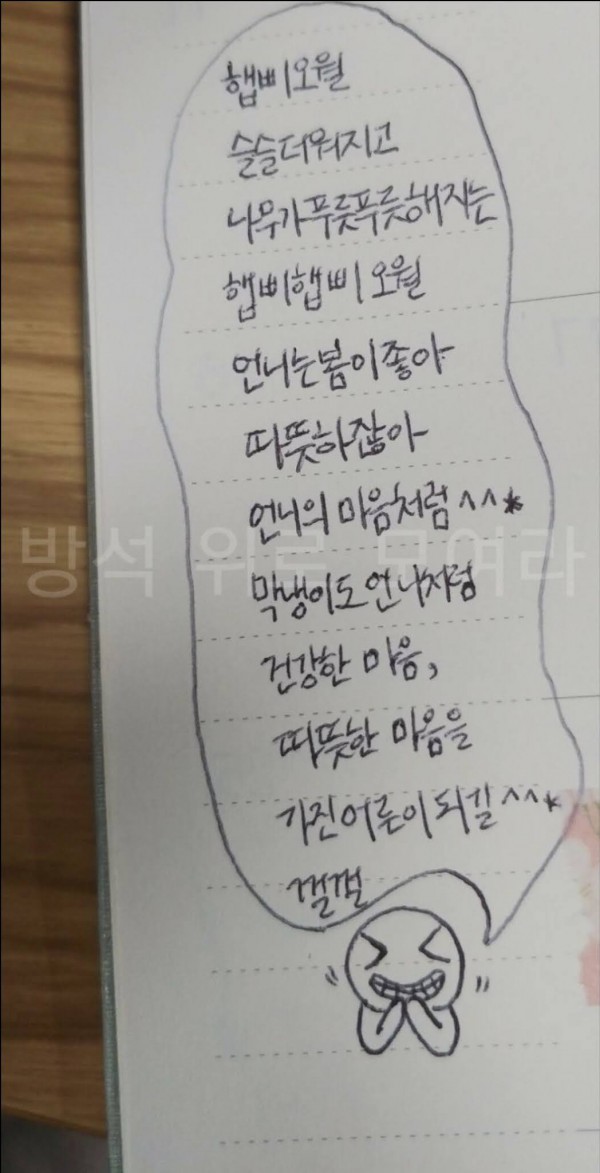 햅삐오월
슬슬더워지고
나무가푸릇푸릇해지는
햅삐햅삐 오월
언니는봄이좋아
따뜻하잖아
언니의 마음처럼^^*
방석 위로 모여라
막냉이도언니처럼
건강한 마음,
따뜻한 마음을
가진어른이되길^^*
껄껄